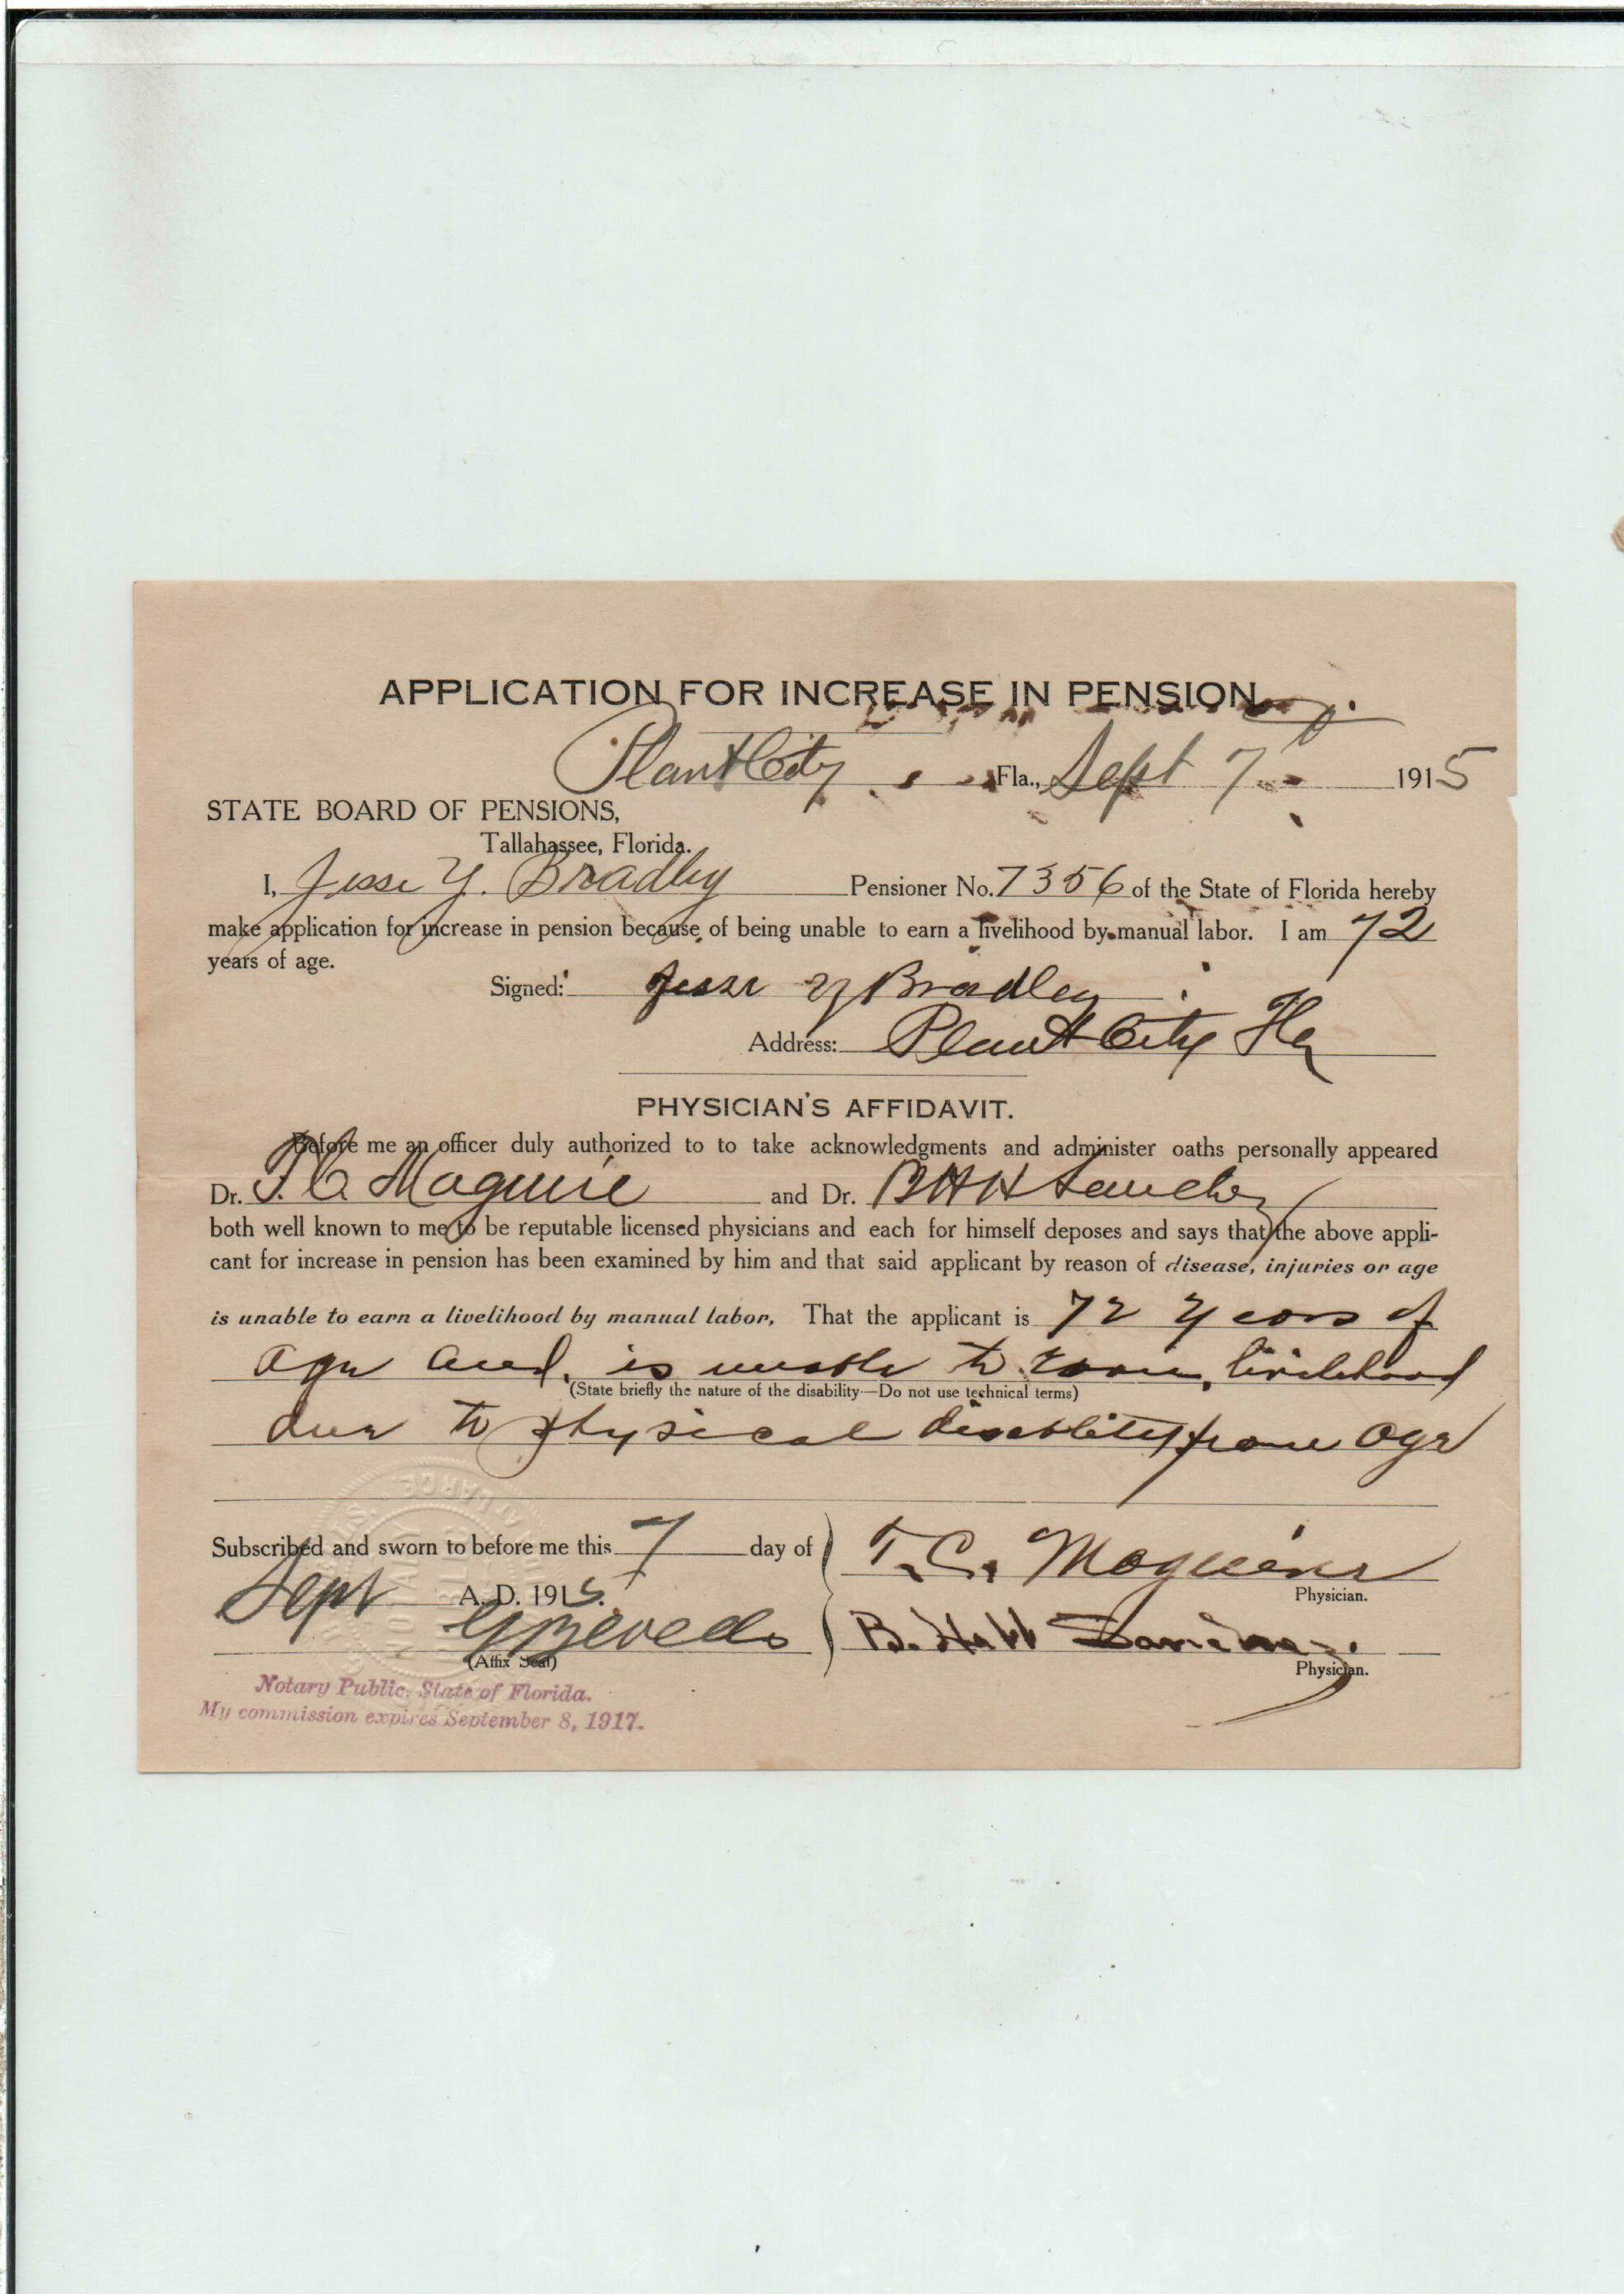 APPLICATION FOR INCREASE IN PENSION.
Plant City Fla., Sept 7 1915
STATE BOARD OF PENSIONS,
Tallahassee, Florida.
I, Jesse Y. Bradley Pensioner No. 7356 of the State of Florida hereby
make application for increase in pension because of being unable to earn a livelihood by manual labor. I am 72
years of age.
Signed: Jesse Y Bradley
Address: Plant City Fla
PHYSICIAN'S AFFIDAVIT.
Before me an officer duly authorized to to take acknowledgments and administer oaths personally appeared
Dr. T. C. Maguire and Dr. B H H Sanchez
both well known to me to be reputable licensed physicians and each for himself deposes and says that the above appli-
cant for increase in pension has been examined by him and that said applicant by reason of disease, injuries or age
is unable to earn a livelihood by manual labor, That the applicant is 72 years of
age and is unable to livelihood
(State briefly the nature of the disability—Do not use technical terms)
due to physical disability from age
Subscribed and sworn to before me this 7 day of T. C. Maguire
Physician.
Sept A. D. 1915.
B.
(Affix Seal) Physician.
Notary Public, State of Florida.
My commission expires September 8, 1917.